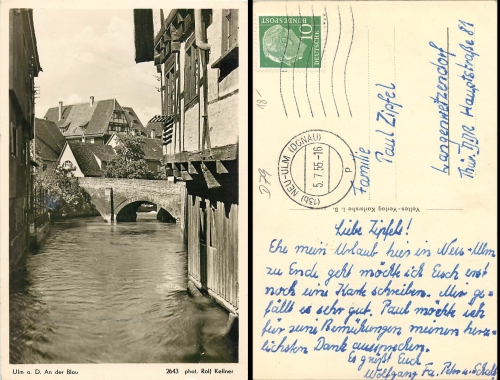 Ulm a. D. An der Blau
2643 phot. Rolf Kellner
DEUTSCHE
BUNDESPOST
10
(13b) NEU-ULM (DONAU)
5.7.55-16
p
18-
D 79
Familie
Paul Zipfel
Langenwetzendorf
Thür. DDR Hauptstraße 81
Velten-Verlag Karlsruhe i. B.
Liebe Zipfels!
Ehe mein Urlaub hier in Neu-Ulm
zu Ende geht möchte ich Euch erst
noch eine Karte schreiben. Mir ge-
fällt es sehr gut. Paul möchte ich
für seine Bemühungen meinen herz-
lichsten Dank aussprechen.
Es grüßt Euch
Wolfgang Fa. Peter u.